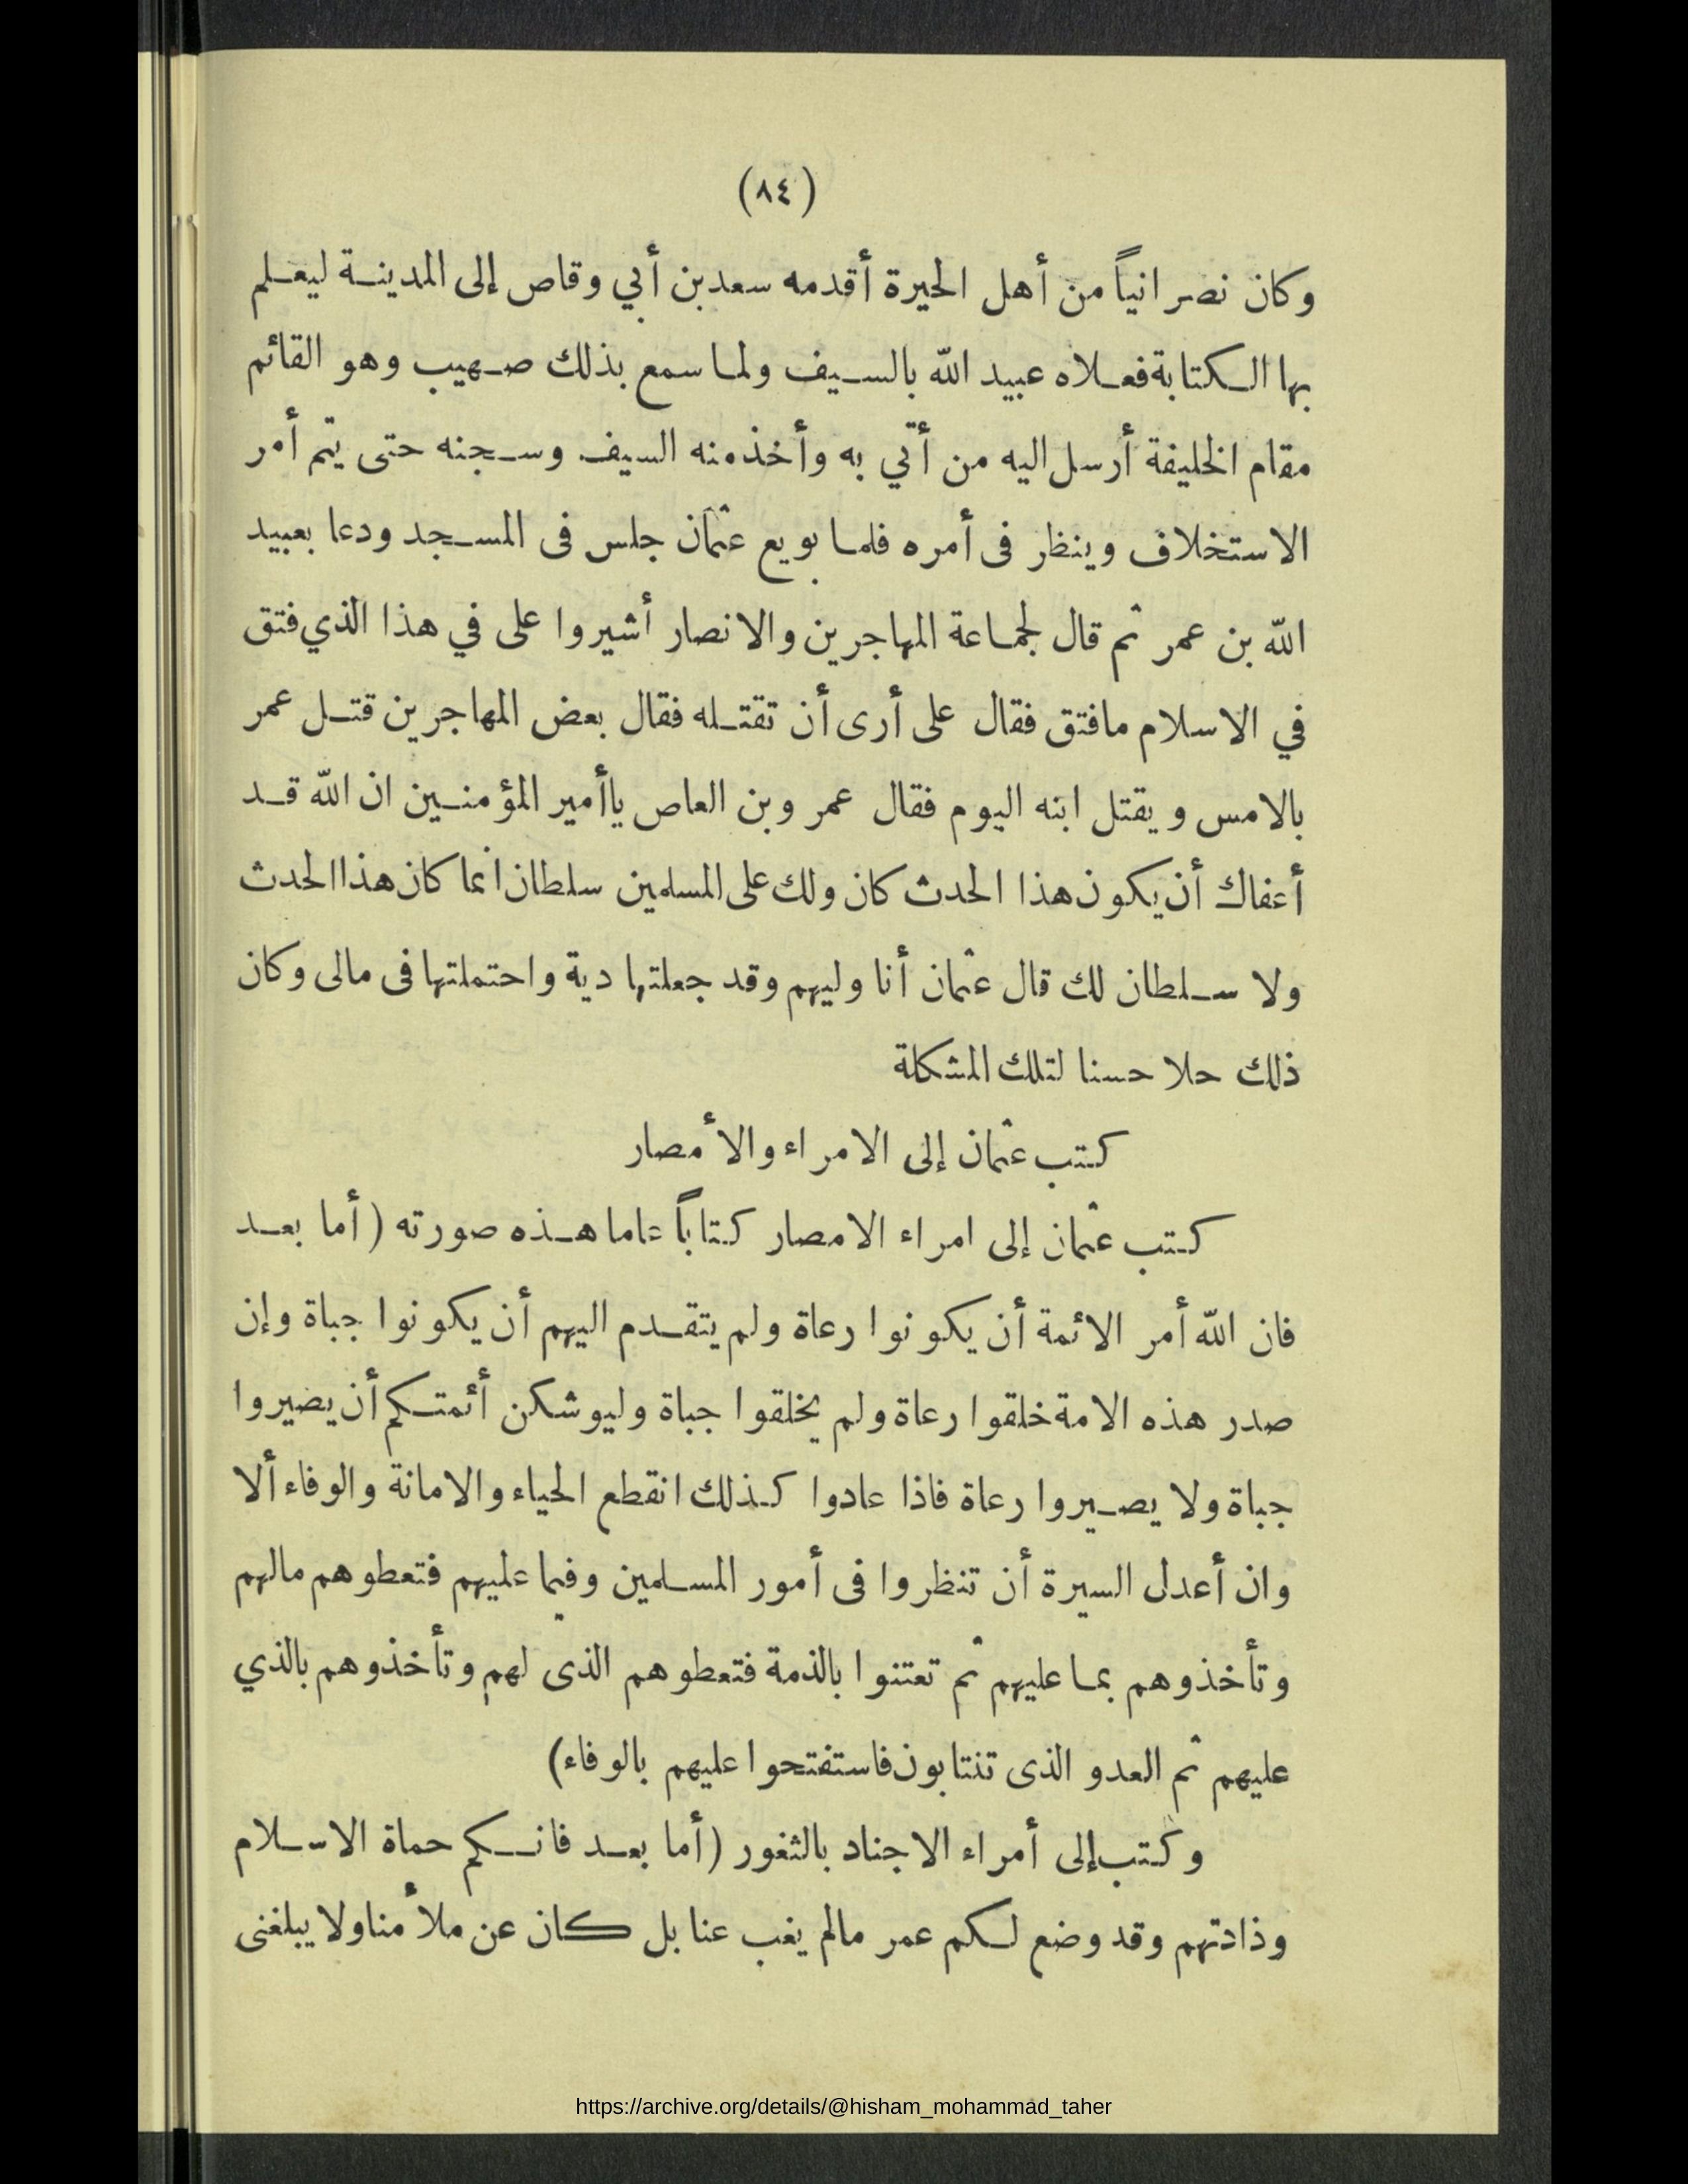 (٨٤)
وكان نصرانياً من أهل الحيرة أقدمه سعد بن أبي وقاص إلى المدينة ليعلم
بها الكتابة فعلاه عبيد الله بالسيف ولما سمع بذلك صهيب وهو القائم
مقام الخليفة أرسل اليه من أتي به وأخذ منه السيف وسجنه حتى يتم أمر
الاستخلاف وينظر فى أمره فلما بويع عثمان جلس فى المسجد ودعا بعبيد
الله بن عمر ثم قال لجماعة المهاجرين والانصار أشيروا على في هذا الذي فتق
في الاسلام مافتق فقال على أرى أن تقتله فقال بعض المهاجرين قتل عمر
بالامس ويقتل ابنه اليوم فقال عمر وبن العاص ياأمير المؤمنين ان الله قد
أعفاك أن يكون هذا الحدث كان ولك على المسلمين سلطان انما كان هذا الحدث
ولا سلطان لك قال عثمان أنا وليهم وقد جعلتها دية واحتملتها فى مالى وكان
ذلك حلا حسنا لتلك المشكلة
كتب عثمان إلى الامراء والأمصار
كتب عثمان إلى امراء الامصار كتاباً عاما هذه صورته (أما بعد
فان الله أمر الائمة أن يكونوا رعاة ولم يتقدم اليهم أن يكونوا جباة وإن
صدر هذه الامة خلقوا رعاة ولم يخلقوا جباة وليوشكن أئمتكم أن يصيروا
جباة ولا يصيروا رعاة فاذا عادوا كذلك انقطع الحياء والامانة والوفاء ألا
وان أعدل السيرة أن تنظروا فى أمور المسلمين وفيما عليهم فتعطوهم مالهم
وتأخذوهم بما عليهم ثم تعتنوا بالذمة فتعطوهم الذى لهم وتأخذوهم بالذي
عليهم ثم العدو الذى تنتابون فاستفتحوا عليهم بالوفاء)
وكتب إلى أمراء الاجناد بالثغور (أما بعد فانكم حماة الاسلام
وذادتهم وقد وضع لكم عمر مالم يغب عنا بل كان عن ملأ منا ولا يبلغنى
https://archive.org/details/@hisham_mohammad_taher